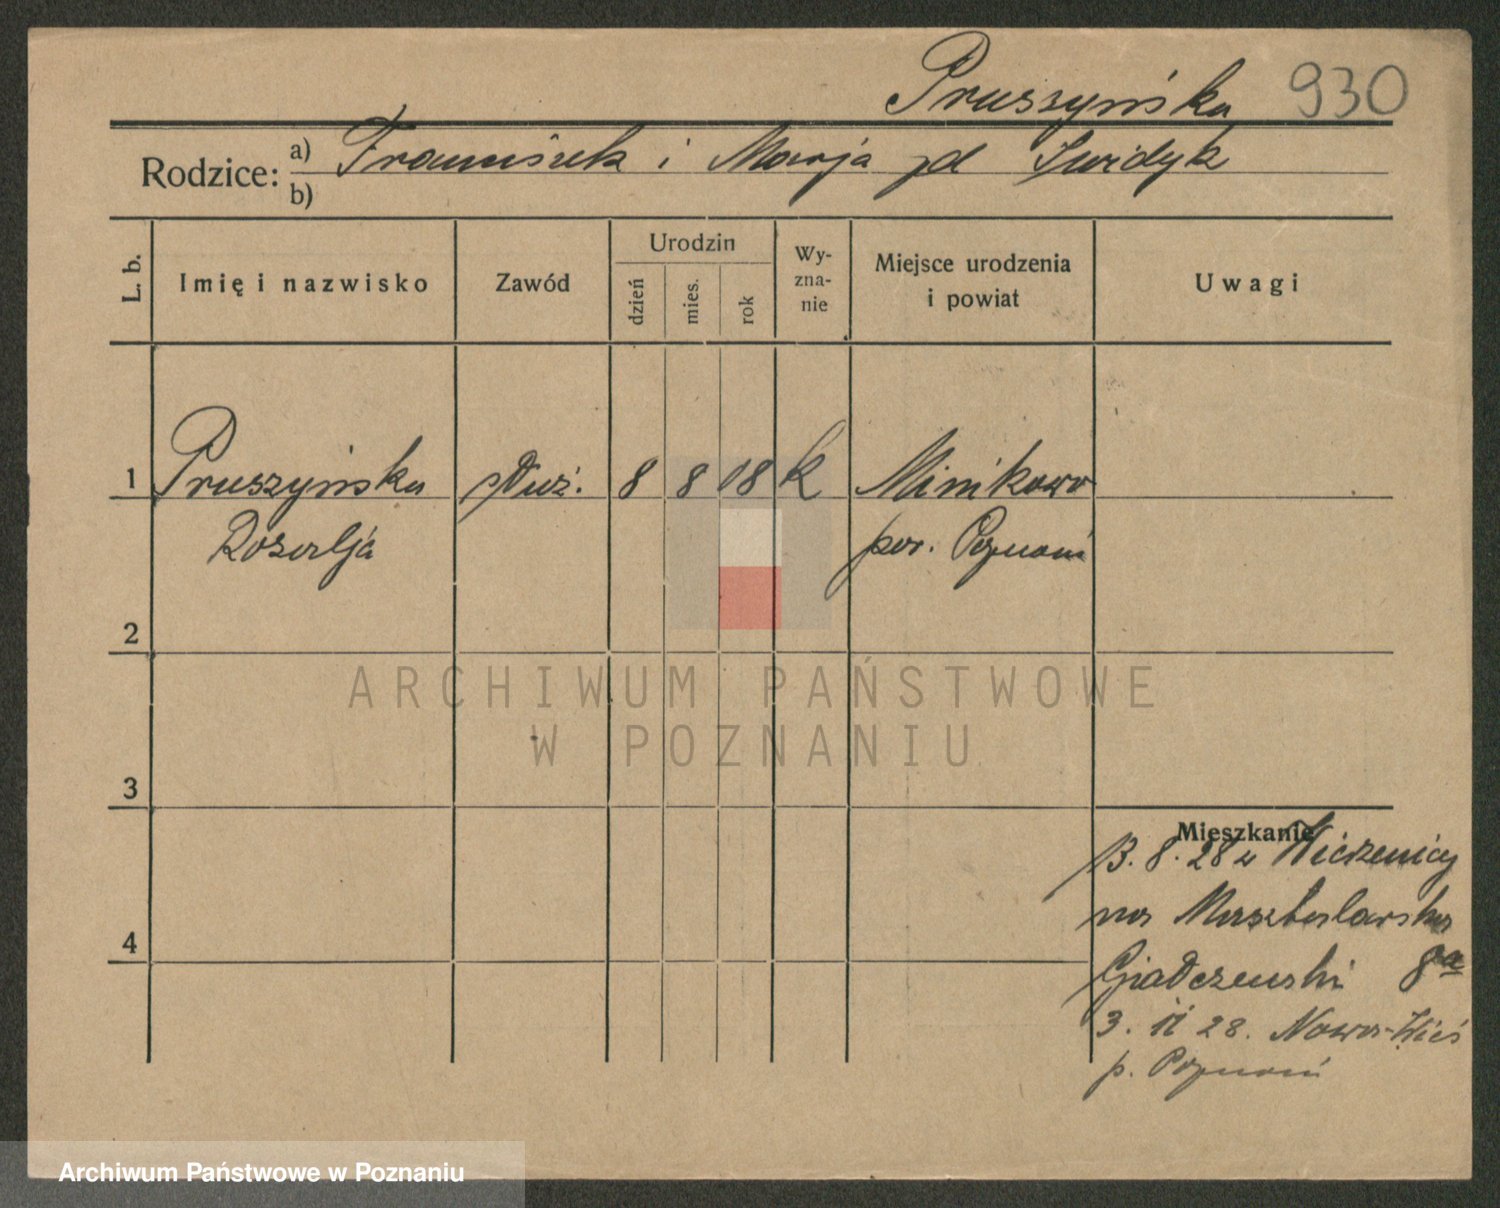 Pruszyńska 930
Rodzice: a) Franciszek i Marja zd Świdyk
b)
L. b. Imię i nazwisko Zawód Urodzin dzień mies. rok Wy-zna-nie Miejsce urodzenia i powiat Uwagi
1 Pruszyńska służ. 8 8 08 k Minikowo
Rozalja pow. Poznań
2
ARCHIWUM PAŃSTWOWE
W POZNANIU
3
Mieszkanie
13. 8. 28 z
na
4
8a
3. 11 28. Nowa-Wieś
p. Poznań
Archiwum Państwowe w Poznaniu